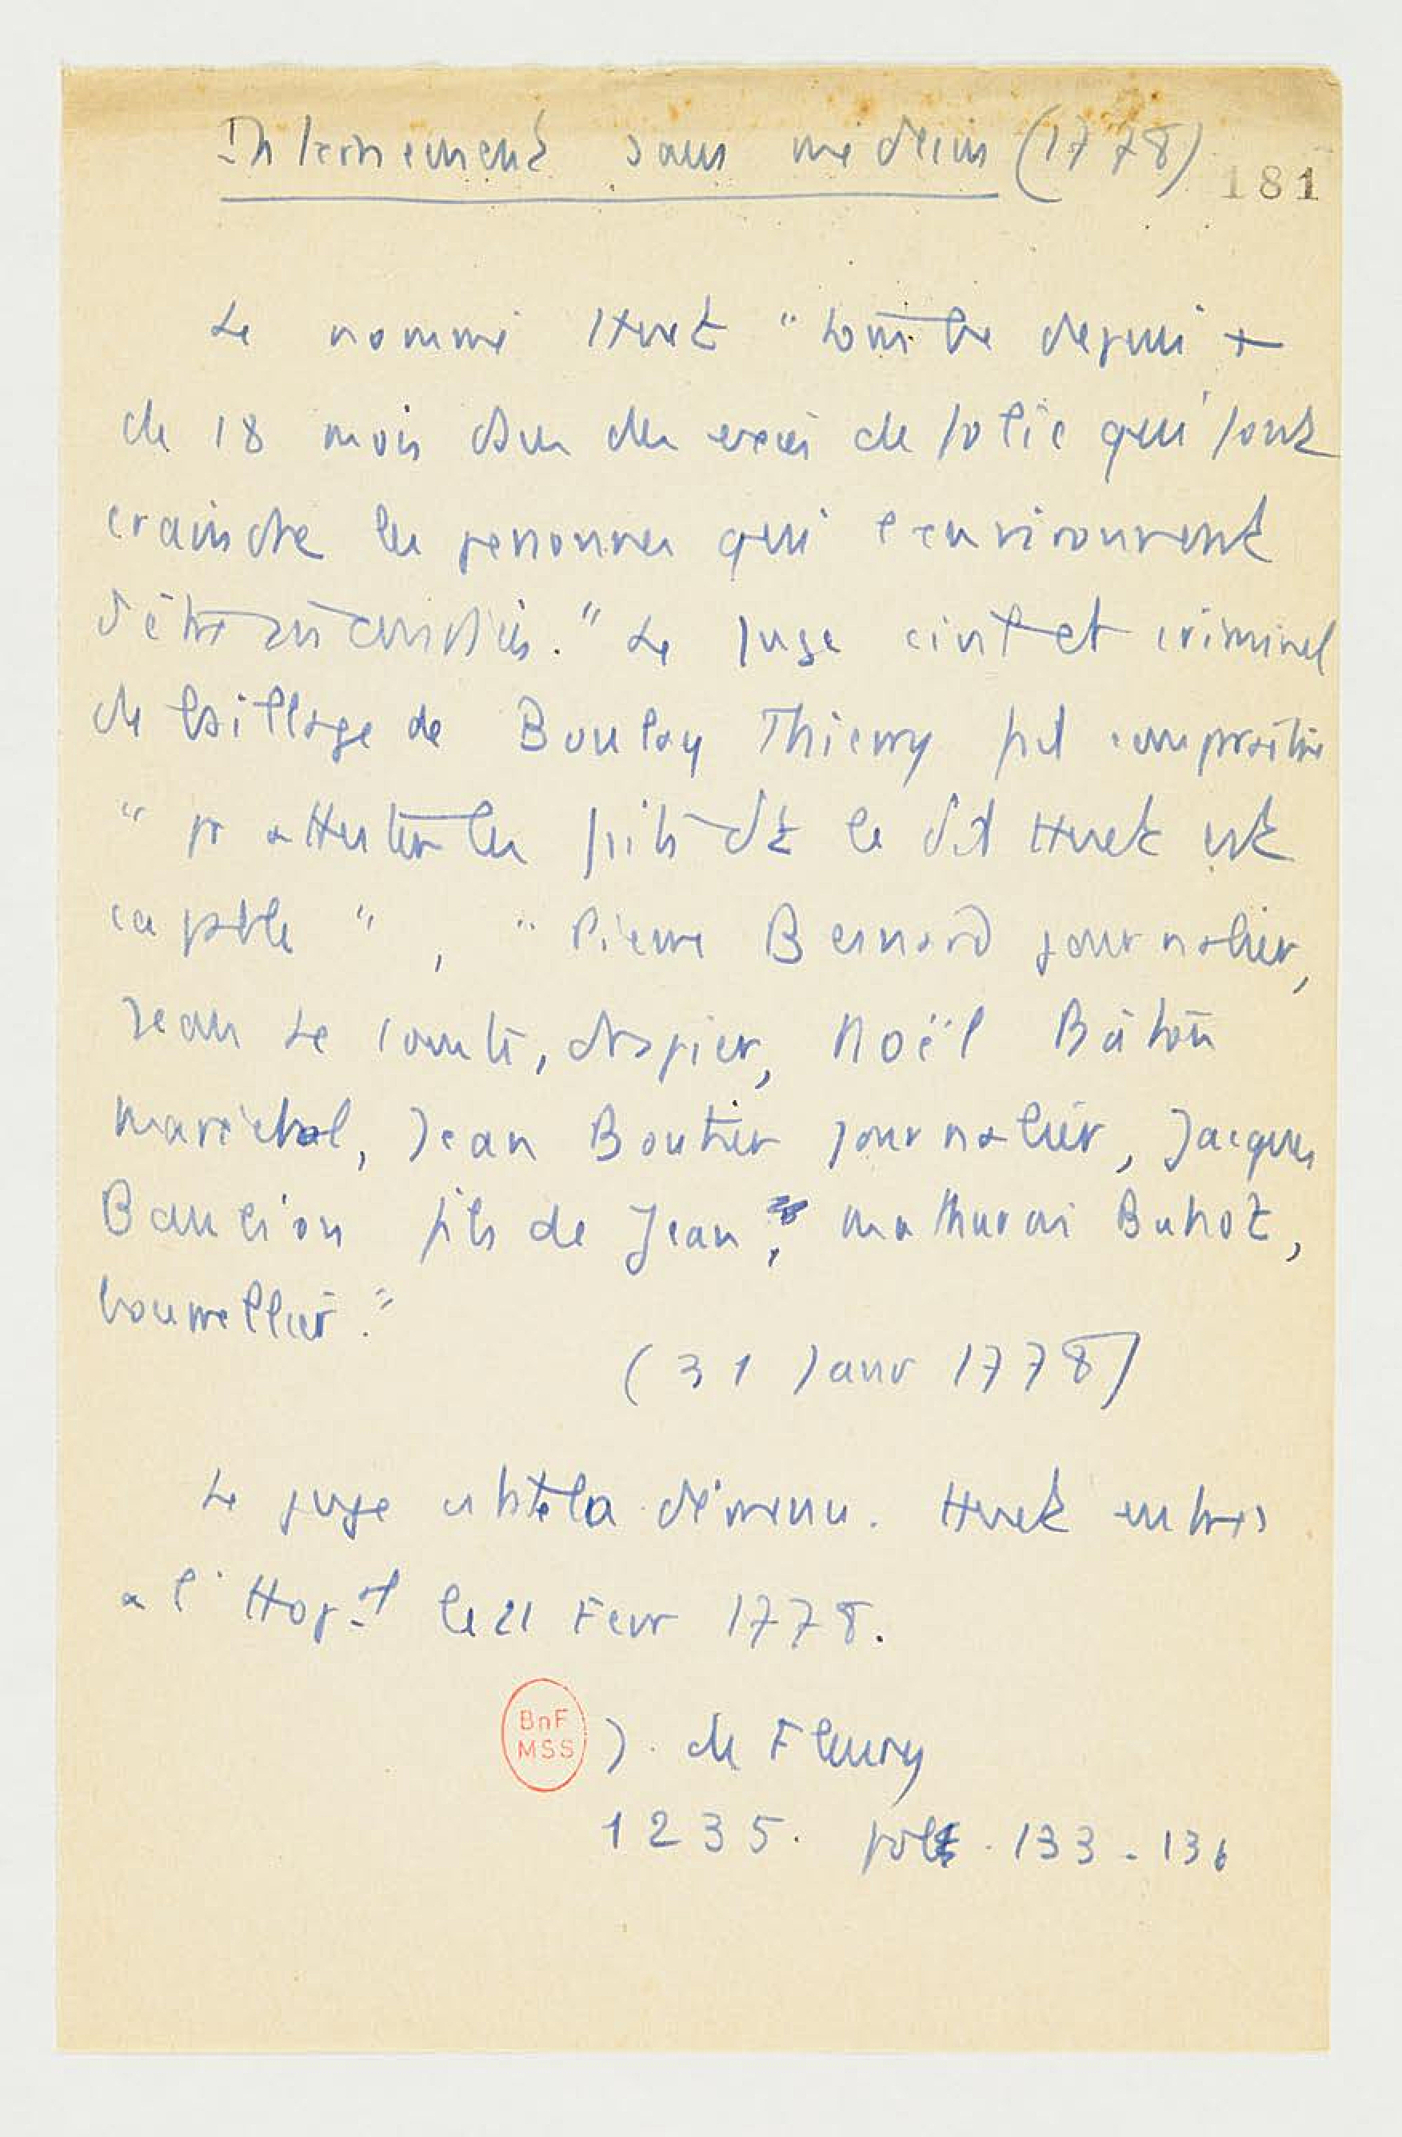 Internement sans médecin (1778)
181
Le nommé Huet "tombe depuis +
de 18 mois ds des excès de folie qui font
craindre les personnes qui l'environnent
d'être incendiés." Le juge civil et criminel
de village de Boulay Thierry fit comparaître
" pr attester les faits dt le dit Huet est
capable " , " Pierre Bernard journalier,
Jean Le Comte, drapier, Noël Bâton
maréchal, Jean Boutier journalier, Jacques
fils de Jean, Mathurin Buhot,
bourrellier."
(31 Janv 1778)
Le juge la démence. Huet entre
a l'Hop.al le 21 Fevr 1778.
BnF
MSS
J. de Fleury
1235. fol. 133-136